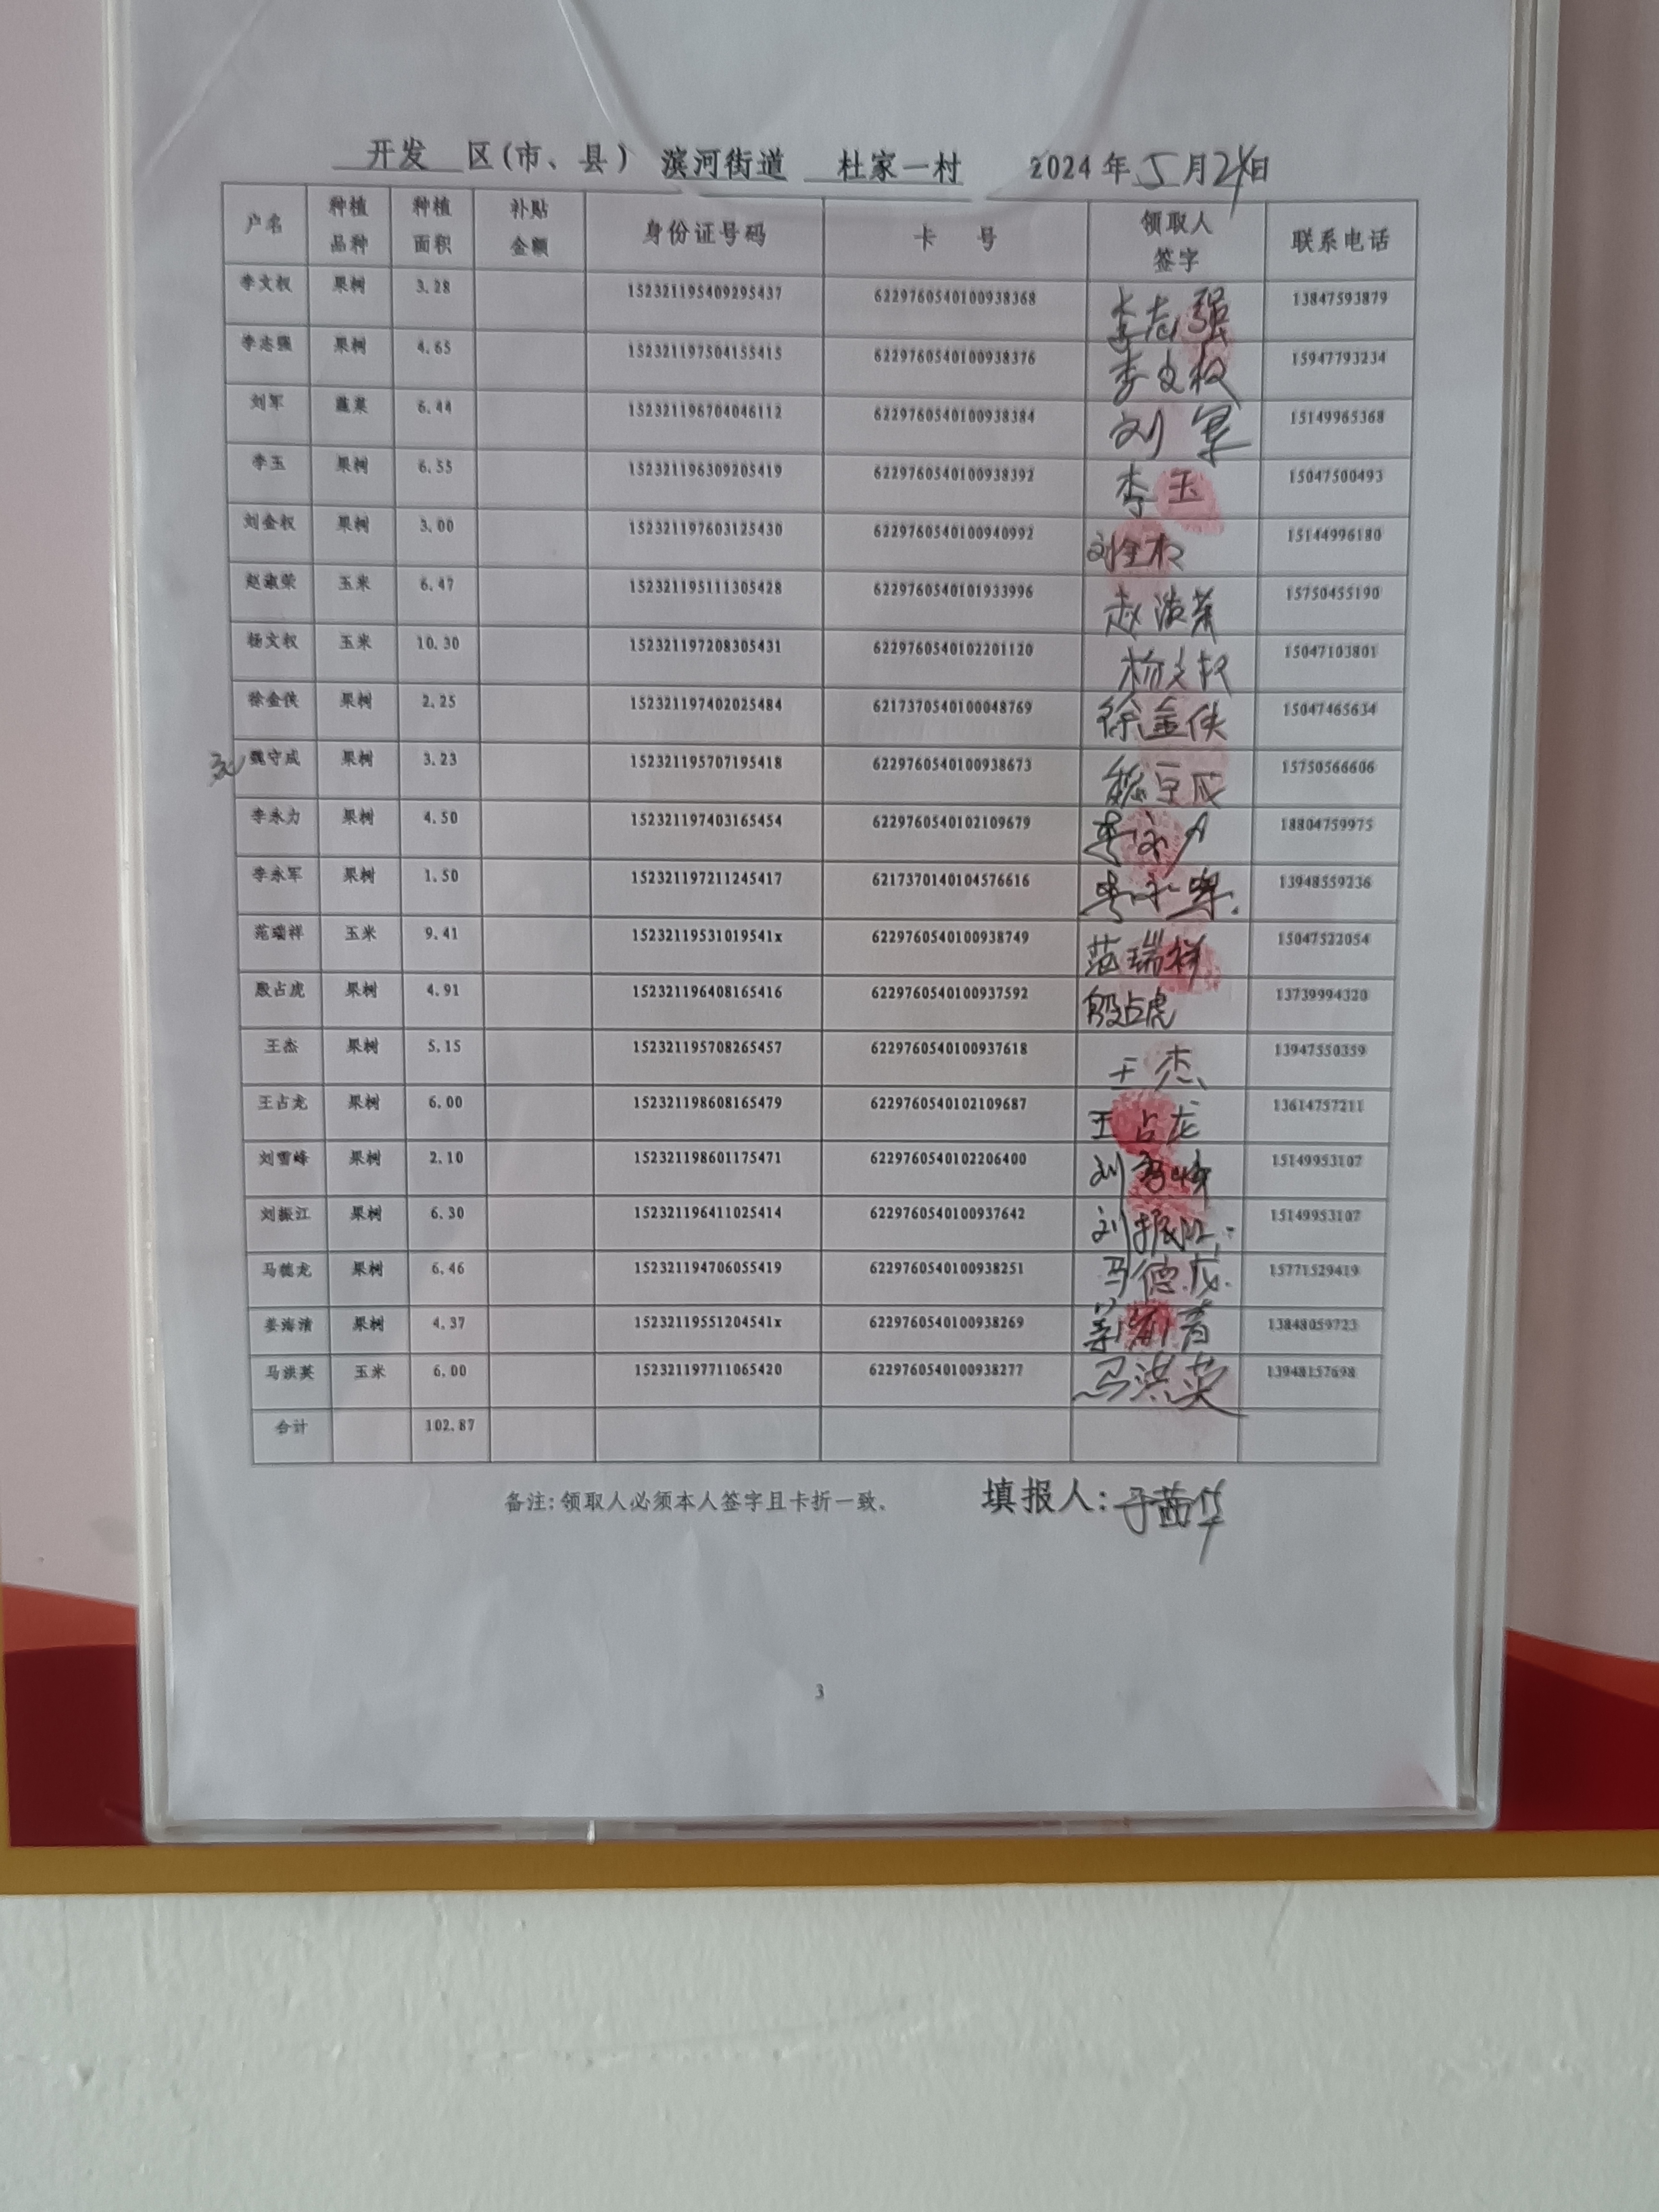 开发 区(市、县) 滨河街道 杜家一村 2024年5月24日
户名 种植品种 种植面积 补贴金额 身份证号码 卡 号 领取人签字 联系电话
李文权 果树 3.28 152321195409295437 6229760540100938368 李志强 13847593879
李志强 果树 4.65 152321197504155415 6229760540100938376 李文权 15947793234
刘军 蔬菜 6.44 152321196704046112 6229760540100938384 刘军 15149965368
李玉 果树 6.55 152321196309205419 6229760540100938392 李玉 15047500493
刘金权 果树 3.00 152321197603125430 6229760540100940992 刘金权 15144996180
赵淑荣 玉米 6.47 152321195111305428 6229760540101933996 赵淑荣 15750455190
杨文权 玉米 10.30 152321197208305431 6229760540102201120 杨文权 15047103801
徐金侠 果树 2.25 152321197402025484 6217370540100048769 徐金侠 15047465634
魏守成 果树 3.23 152321195707195418 6229760540100938673 魏守成 15750566606
李永力 果树 4.50 152321197403165454 6229760540102109679 李永力 18804759975
李永军 果树 1.50 152321197211245417 6217370140104576616 李永军 13948559236
范瑞祥 玉米 9.41 15232119531019541x 6229760540100938749 范瑞祥 15047522054
殷占虎 果树 4.91 152321196408165416 6229760540100937592 殷占虎 13739994320
王杰 果树 5.15 152321195708265457 6229760540100937618 王杰 13947550359
王占龙 果树 6.00 152321198608165479 6229760540102109687 王占龙 13614757211
刘雪峰 果树 2.10 152321198601175471 6229760540102206400 刘雪峰 15149953107
刘振江 果树 6.30 152321196411025414 6229760540100937642 刘振江 15149953107
马德龙 果树 6.46 152321194706055419 6229760540100938251 马德龙 15771529419
姜海清 果树 4.37 15232119551204541x 6229760540100938269 13848059723
马洪英 玉米 6.00 152321197711065420 6229760540100938277 马洪英 13948157698
合计 102.87
备注:领取人必须本人签字且卡折一致。 填报人:于茜华
3